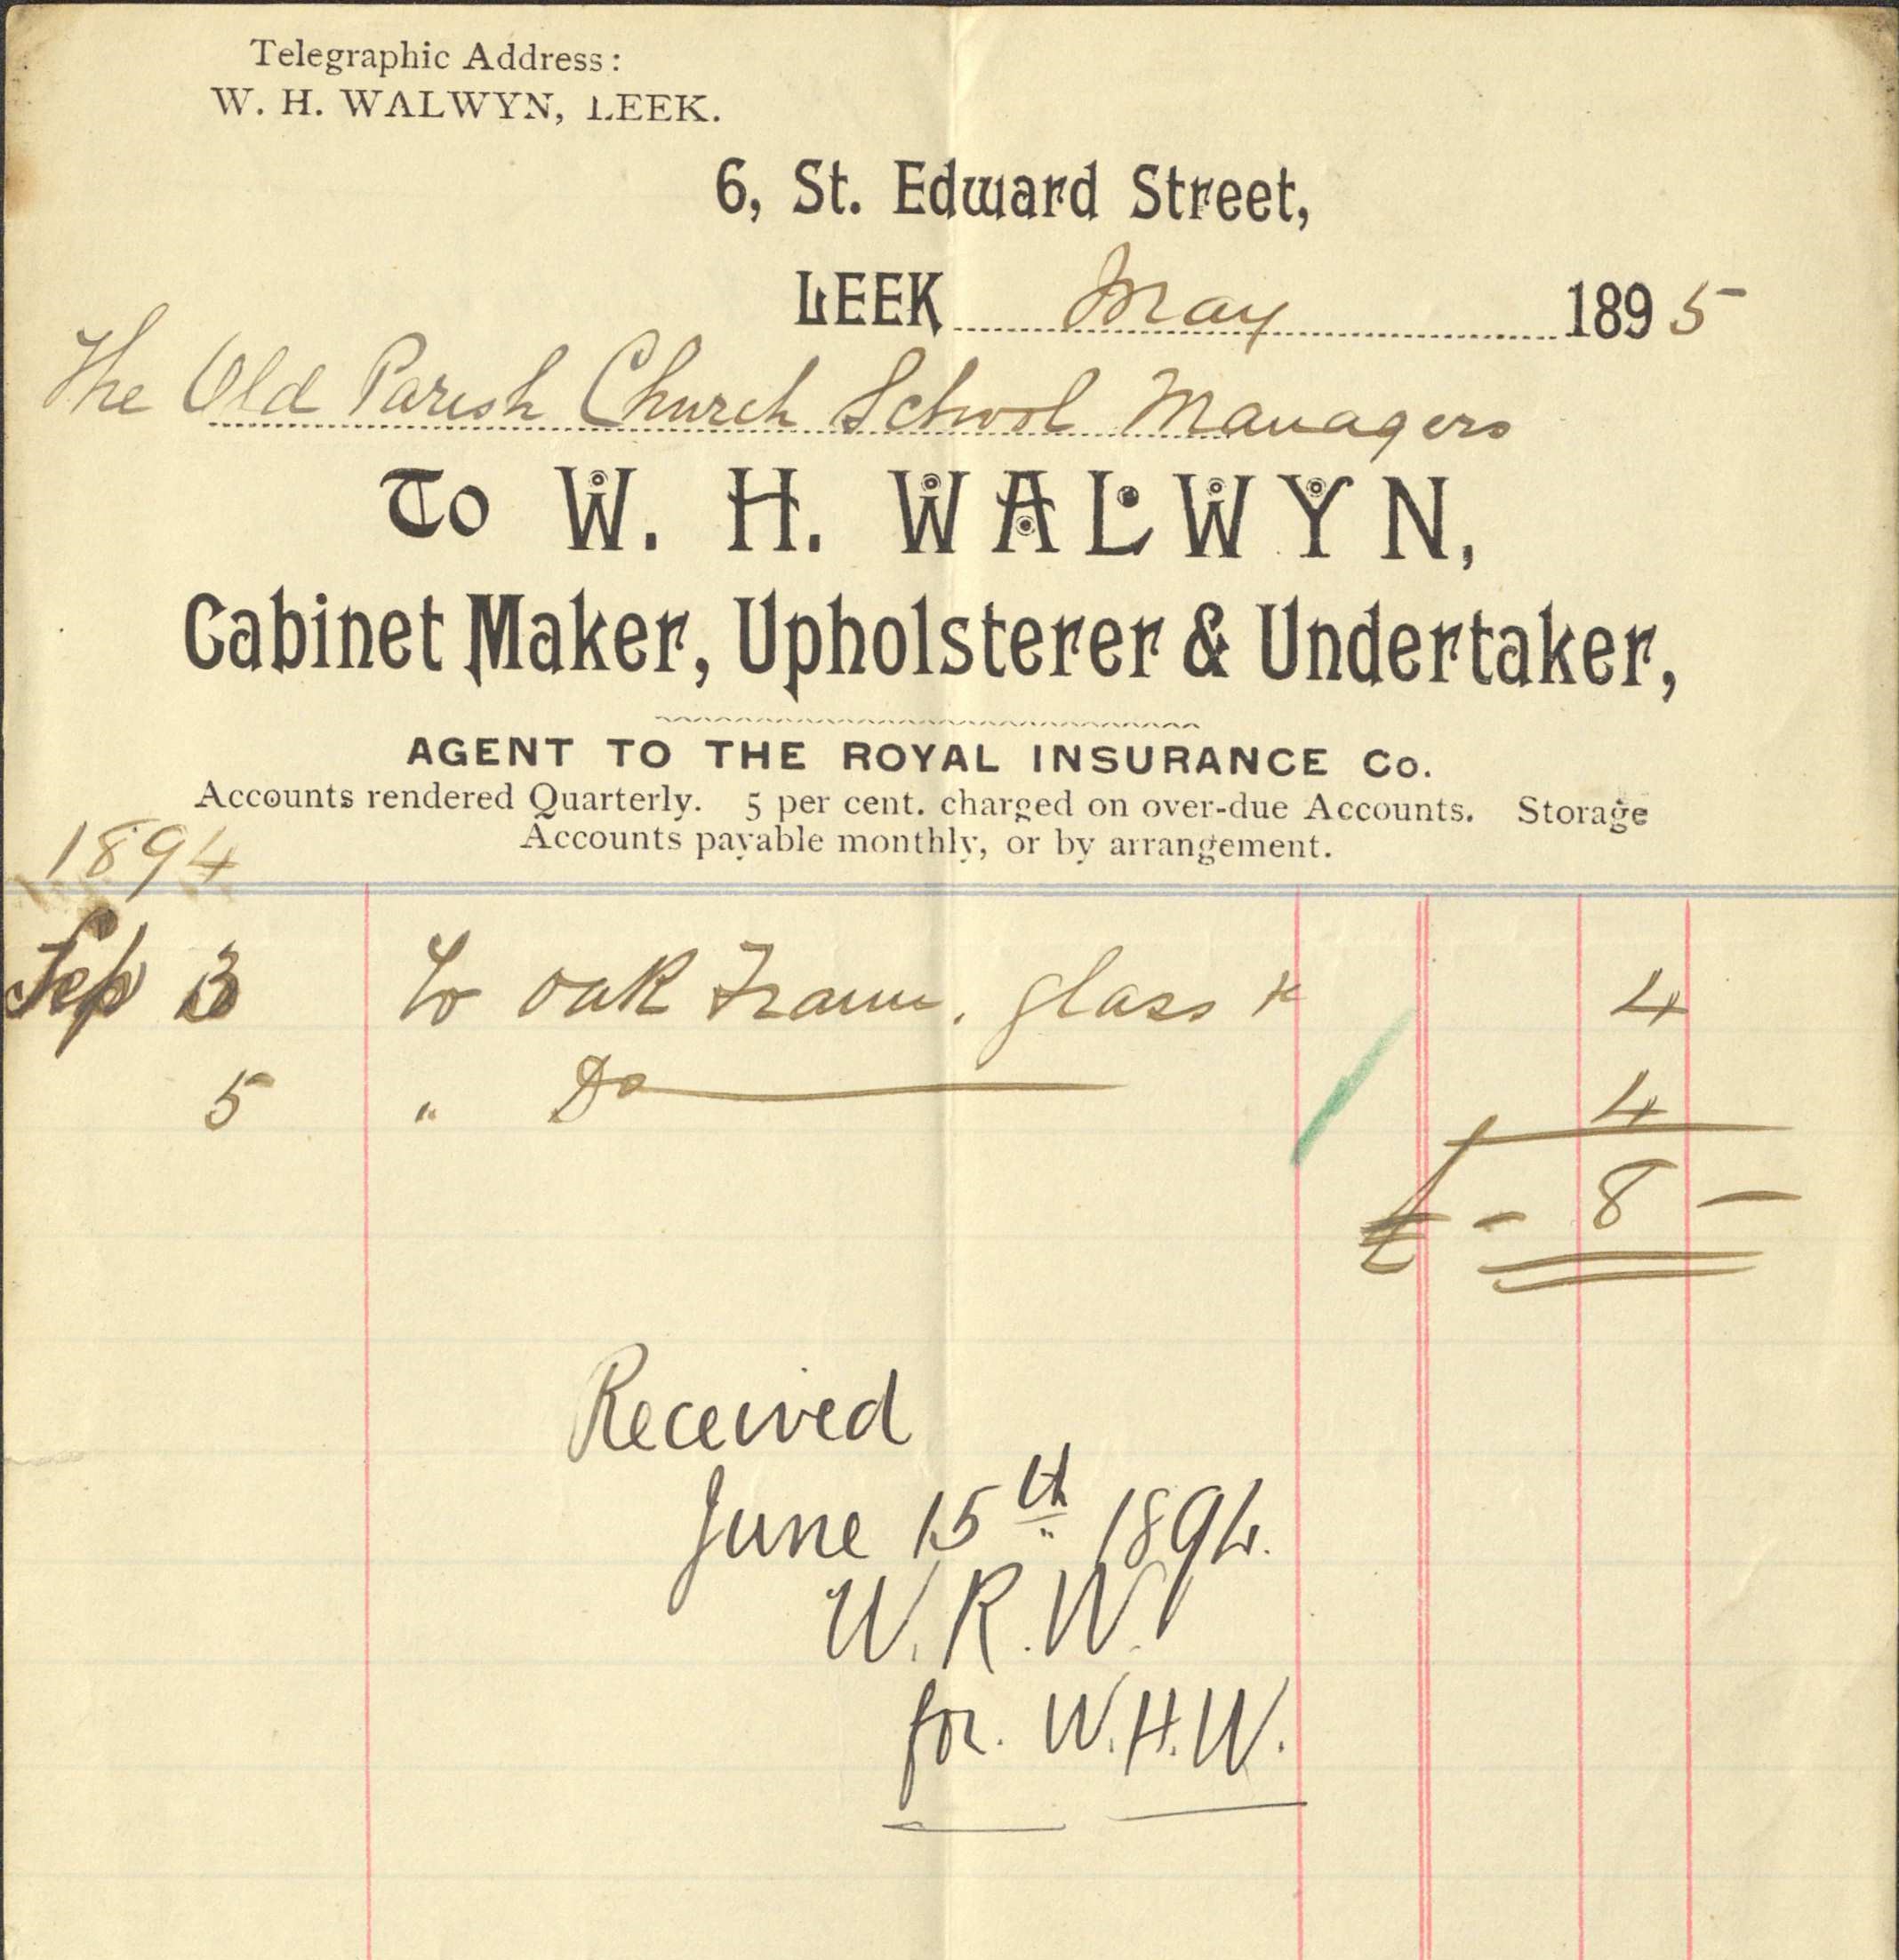 Telegraphic Address:
W. H. WALWYN, LEEK.
6, St. Edward Street,
LEEK May 1895
The Old Parish Church School Managers
To W. H. WALWYN,
Cabinet Maker, Upholsterer & Undertaker,
AGENT TO THE ROYAL INSURANCE Co.
Accounts rendered Quarterly. 5 per cent. charged on over-due Accounts. Storage
Accounts payable monthly, or by arrangement.
1894
Sep 3 To Oak Frame, glass 4
5 " Do 4
£ - 8 -
Received
June 15th 1894.
W. R. W.
for. W.H.W.